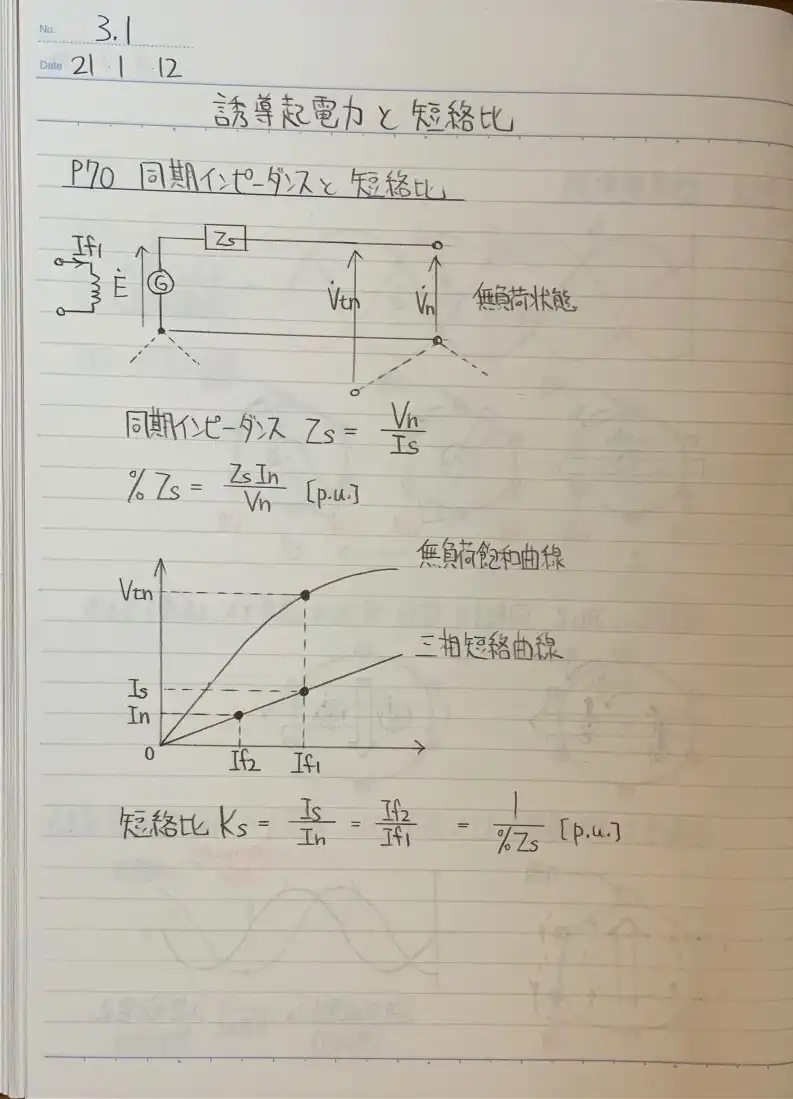 No. 3.1
Date 21 1 12
誘導起電力と短絡比
P70 同期インピーダンスと短絡比
If1
Ė
G
Zs
V̇tn
V̇n
無負荷状態
同期インピーダンス Zs = Vn/Is
%Zs = ZsIn/Vn [p.u.]
無負荷飽和曲線
Vtn
三相短絡曲線
Is
In
0
If2 If1
短絡比 Ks = Is/In = If2/If1 = 1/%Zs [p.u.]